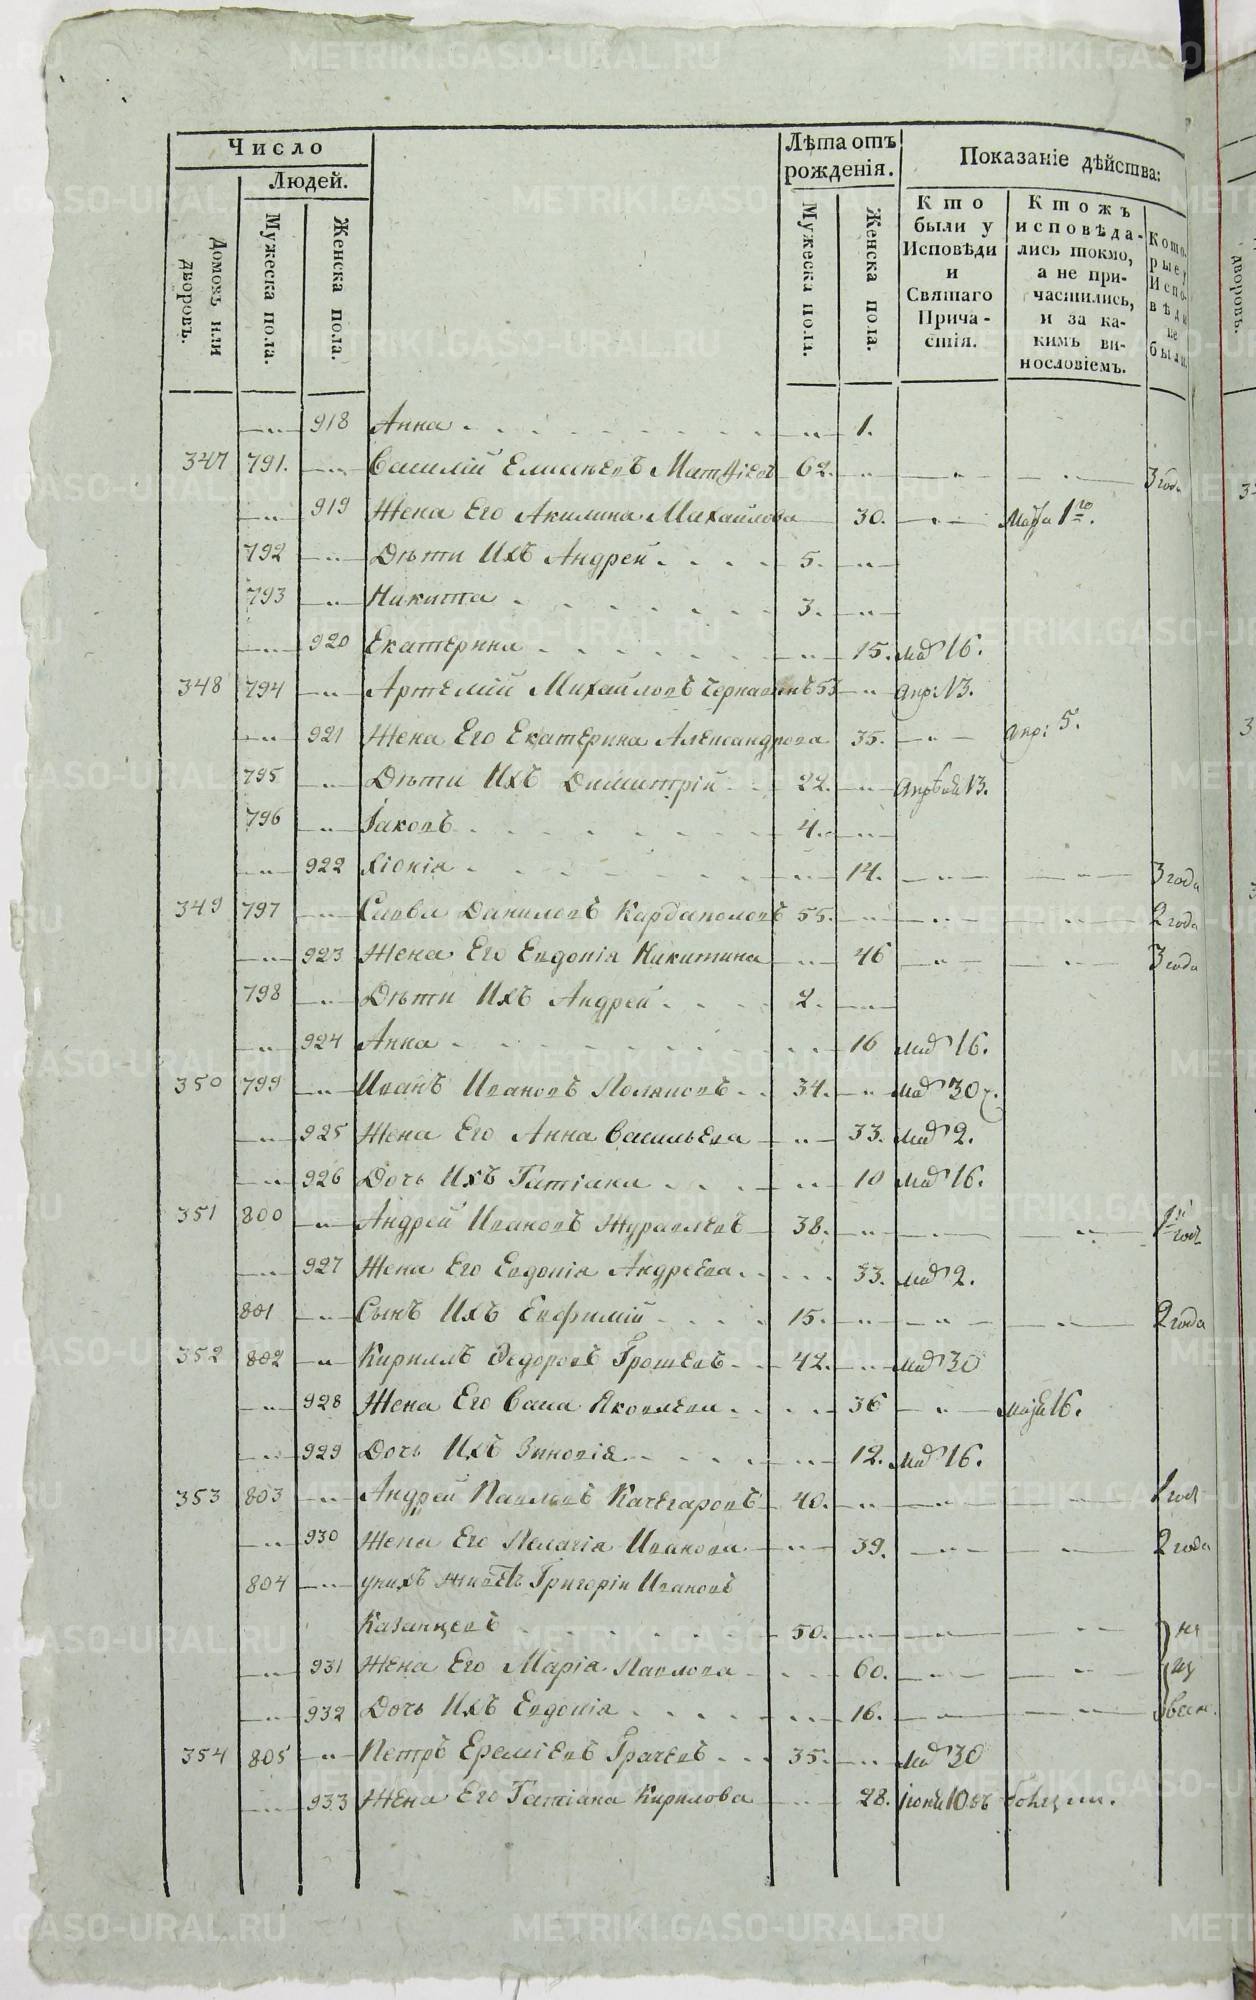 Число
Людей.
Домовъ или дворовъ.
Мужеска пола.
Женска пола.
Лѣта отъ рожденія.
Мужеска пола.
Женска пола.
Показаніе дѣйства:
Кто были у Исповѣди и Святаго Прича-стія.
Ктожъ исповѣда-лись токмо, а не при-частились, и за ка-кимъ ви-нословіемъ.
Кото-рые у Испо-вѣди не были.
918 Анна 1.
347 791. Василій Елисѣевъ Матѳіевъ 62. 3 года
919 Жена Его Акилина Михайлова 30. Марта 1го.
792 Дѣти Ихъ Андрей 5.
793 Никита 3.
920 Екатерина 15. мар 16.
348 794 Артемій Михайловъ 53 апр: 13.
921 Жена Его Екатерина Александрова 35. апр: 5.
795 Дѣти Ихъ Димитрій 22. 13.
796 Іаковъ 4.
922 Хіонія 14. 3 года
349 797 Савва Даниловъ Кардаполовъ 55. 2 года
923 Жена Его Евдокія Никитина 46 3 года
798 Дѣти Ихъ Андрей 2.
924 Анна 16 мар 16.
350 799 Иванъ Ивановъ Поляковъ 34. мар 30
925 Жена Его Анна Васильева 33. мар 2.
926 Дочь Ихъ Татіана 10 мар 16.
351 800 Андрей Ивановъ Журавлевъ 38. 1й годъ
927 Жена Его Евдокія Андреева 33. мар 2.
801 Сынъ Ихъ Евфимій 15. 2 года
352 802 Кириллъ Ѳедоровъ Грошевъ 42. мар 30
928 Жена Его Васса Яковлева 36 16.
929 Дочь Ихъ Зиновія 12. мар 16.
353 803 Андрей Павловъ Качегаровъ 40. 1 годъ
930 Жена Его Пелагія Иванова 39. 2 года
804 у нихъ живетъ Григорій Ивановъ
Казанцевъ 50. не
931 Жена Его Марія Павлова 60. из
932 Дочь Ихъ Евдокія 16. вест.
354 805 Петръ Еремѣевъ Грачевъ 35. мар 30
933 Жена Его Татіана Кирилова 28. 10 въ болезни.
METRIKI.GASO-URAL.RU